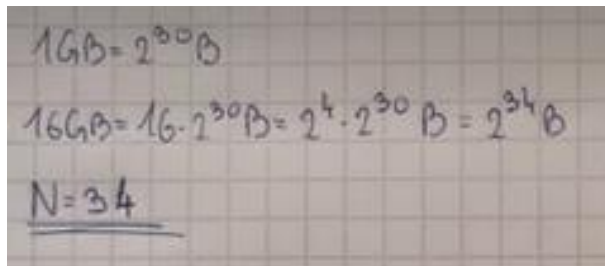 1GB = 2³⁰B
16GB = 16 · 2³⁰B = 2⁴ · 2³⁰ B = 2³⁴B
N = 34